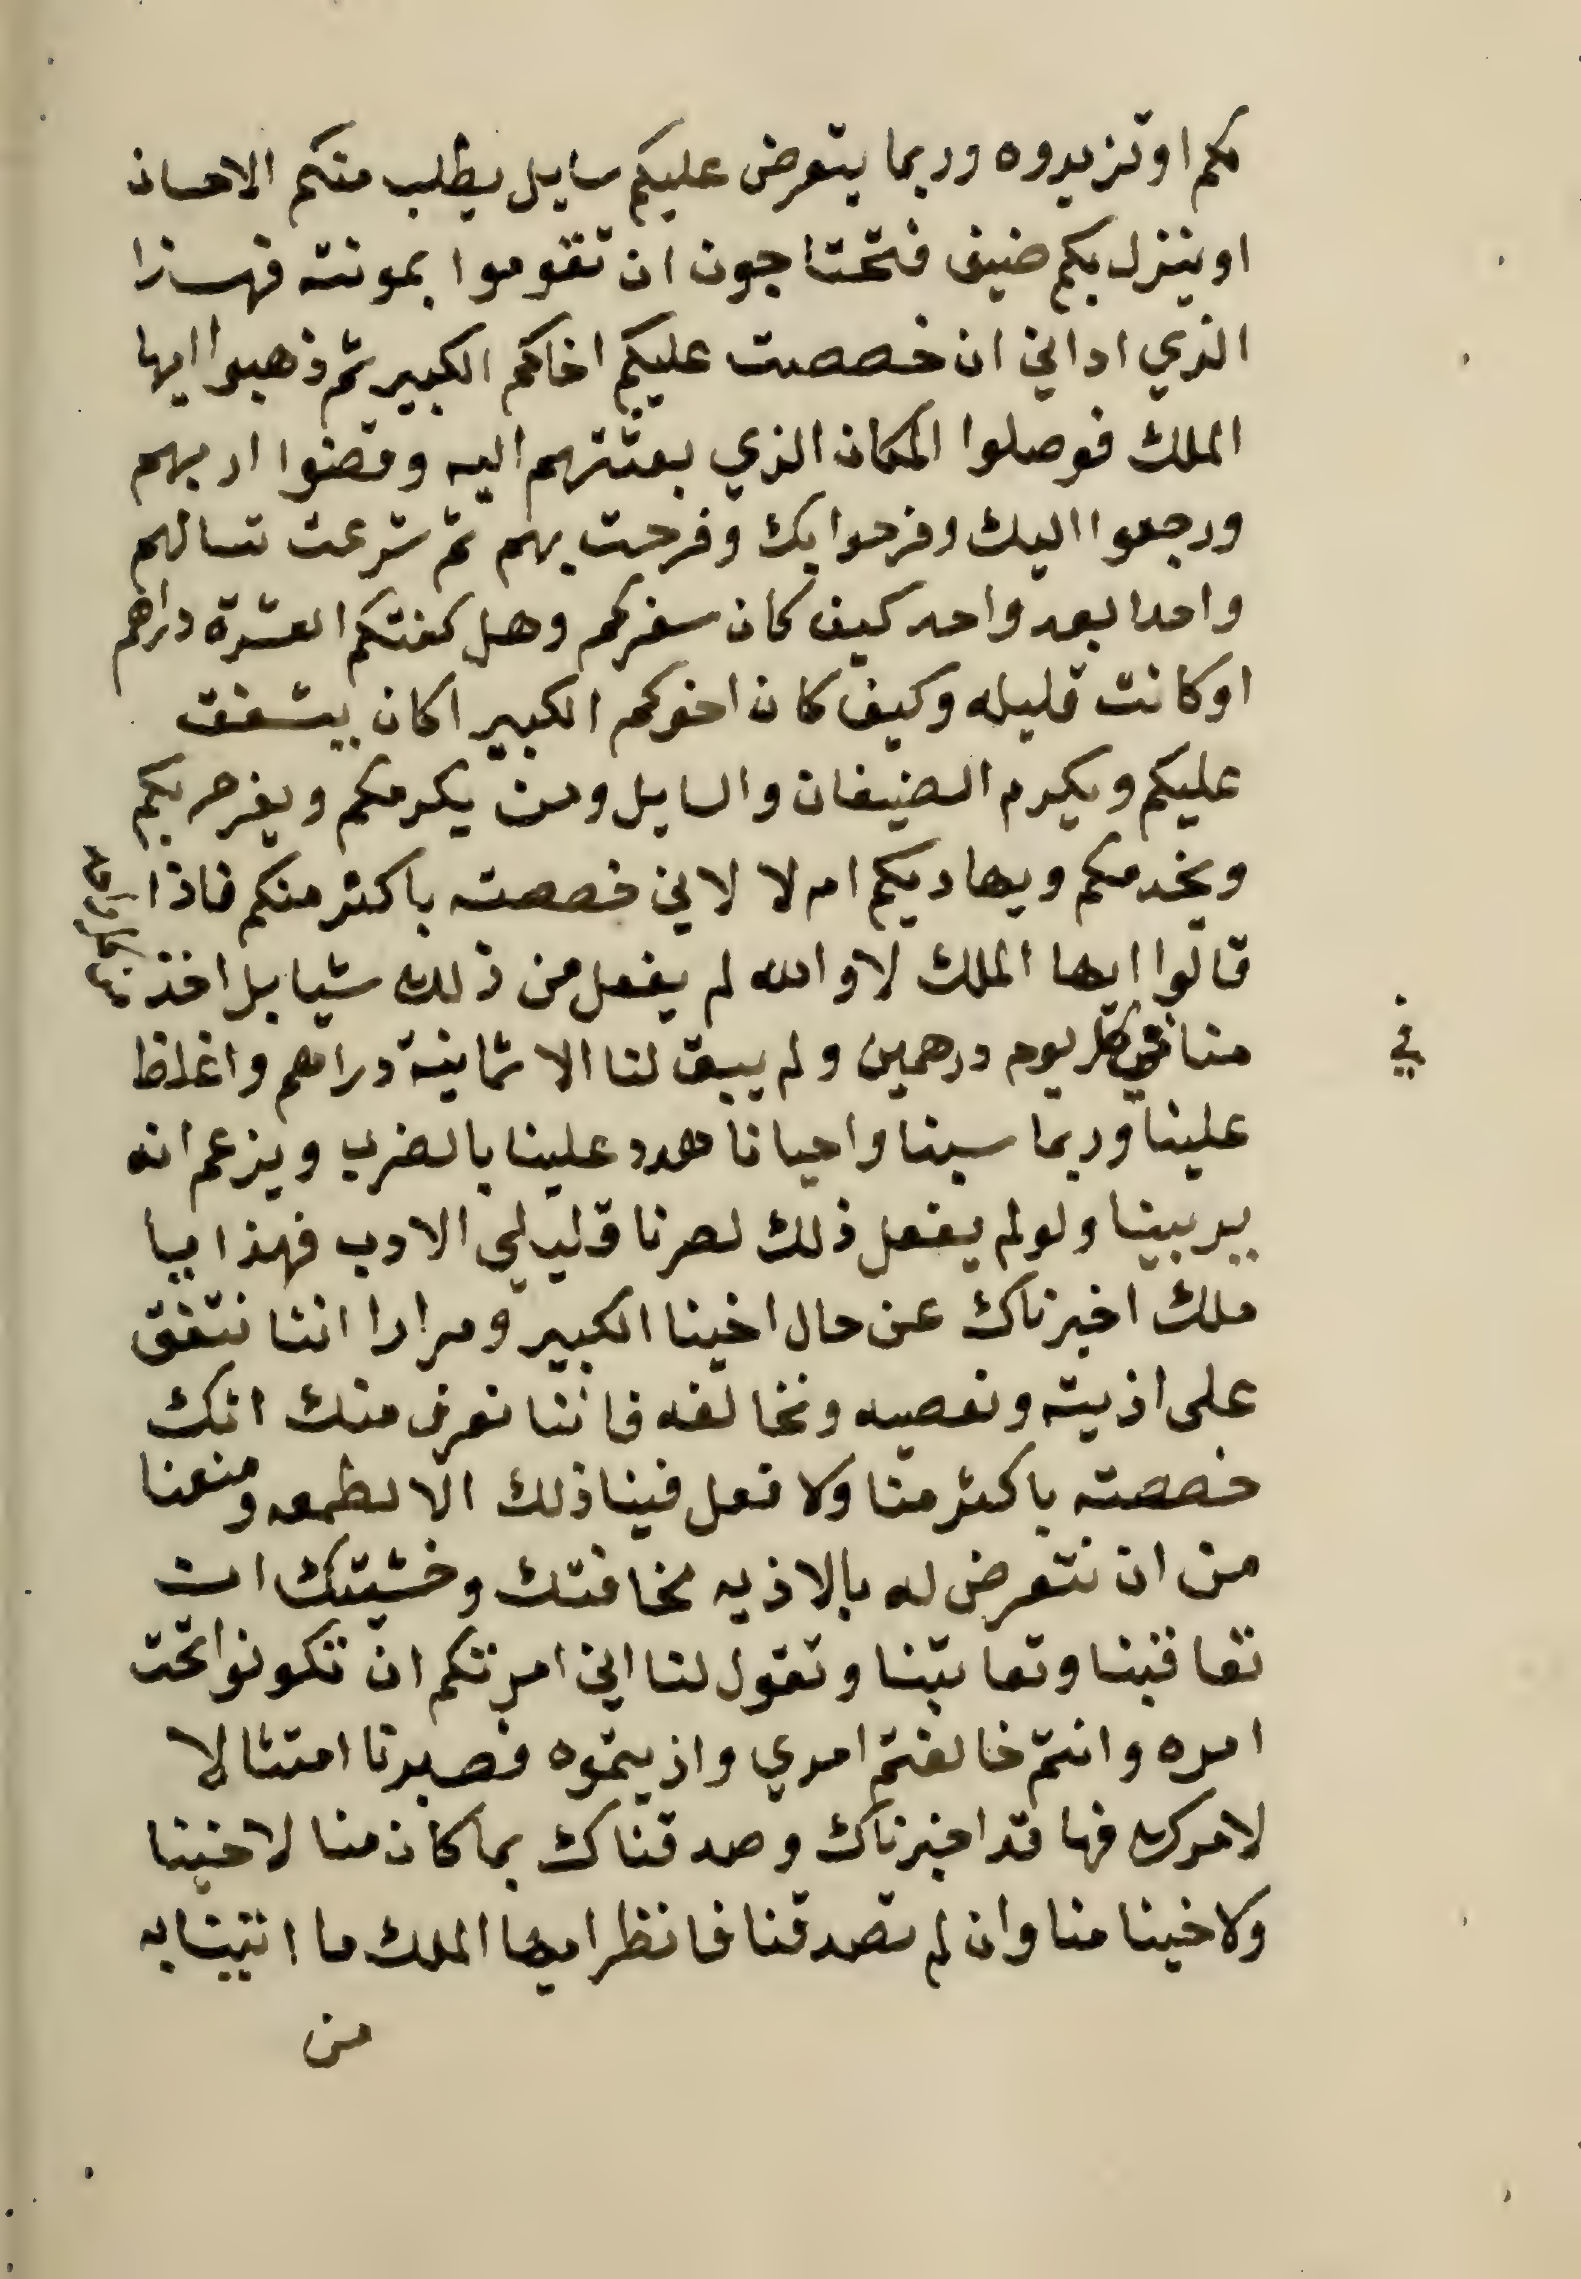 كم او تزيدوه وربما يتعرض عليكم سايل يطلب منكم الاحسان
او ينزل بكم ضيف فتحتاجون ان تقوموا بمونته فهذا
الذي اداني ان خصصت عليكم اخاكم الكبير ثم ذهبوا ايها
الملك فوصلوا المكان الذي بعثتهم اليه وقضوا اربهم
ورجعوا اليك وفرحوا بك وفرحت بهم ثم شرعت تسالهم
واحدا بعد واحد كيف كان سفركم وهل كفتكم العشرة دراهم
او كانت قليله وكيف كان اخوكم الكبير اكان يشفق
عليكم ويكرم الضيفان والسايل ومن يكرمكم ويفرح بكم
ويخدمكم ويهاديكم ام لا لاني خصصته باكثر منكم فاذا
قالوا ايها الملك لا والله لم يفعل من ذلك شيا بل اخذ
منا في كل يوم درهمين ولم يبق لنا الا ثمانية دراهم واغلظ
في
علينا وربما سبنا واحيانا هدد علينا بالضرب ويزعم انه
يربينا ولو لم يفعل ذلك لصرنا قليلي الادب فهذا يا
ملك اخبرناك عن حال اخينا الكبير ومرارا اننا نتفق
على اذيته ونعصيه ونخالفه فاننا نعرف منك انك
خصصته باكثر منا ولا فعل فينا ذلك الا لطمعه ومنعنا
من ان نتعرض له بالاذيه مخافتك وخشيتك ان
تعاقبنا وتعاتبنا وتقول لنا اني امرتكم ان تكونوا تحت
امره وانتم خالفتم امري واذيتموه فصبرنا امتثالا
لامرك فها قد اخبرناك وصدقناك بما كان منا لاخينا
ولاخينا منا وان لم تصدقنا فانظر ايها الملك ما اتينا به
من